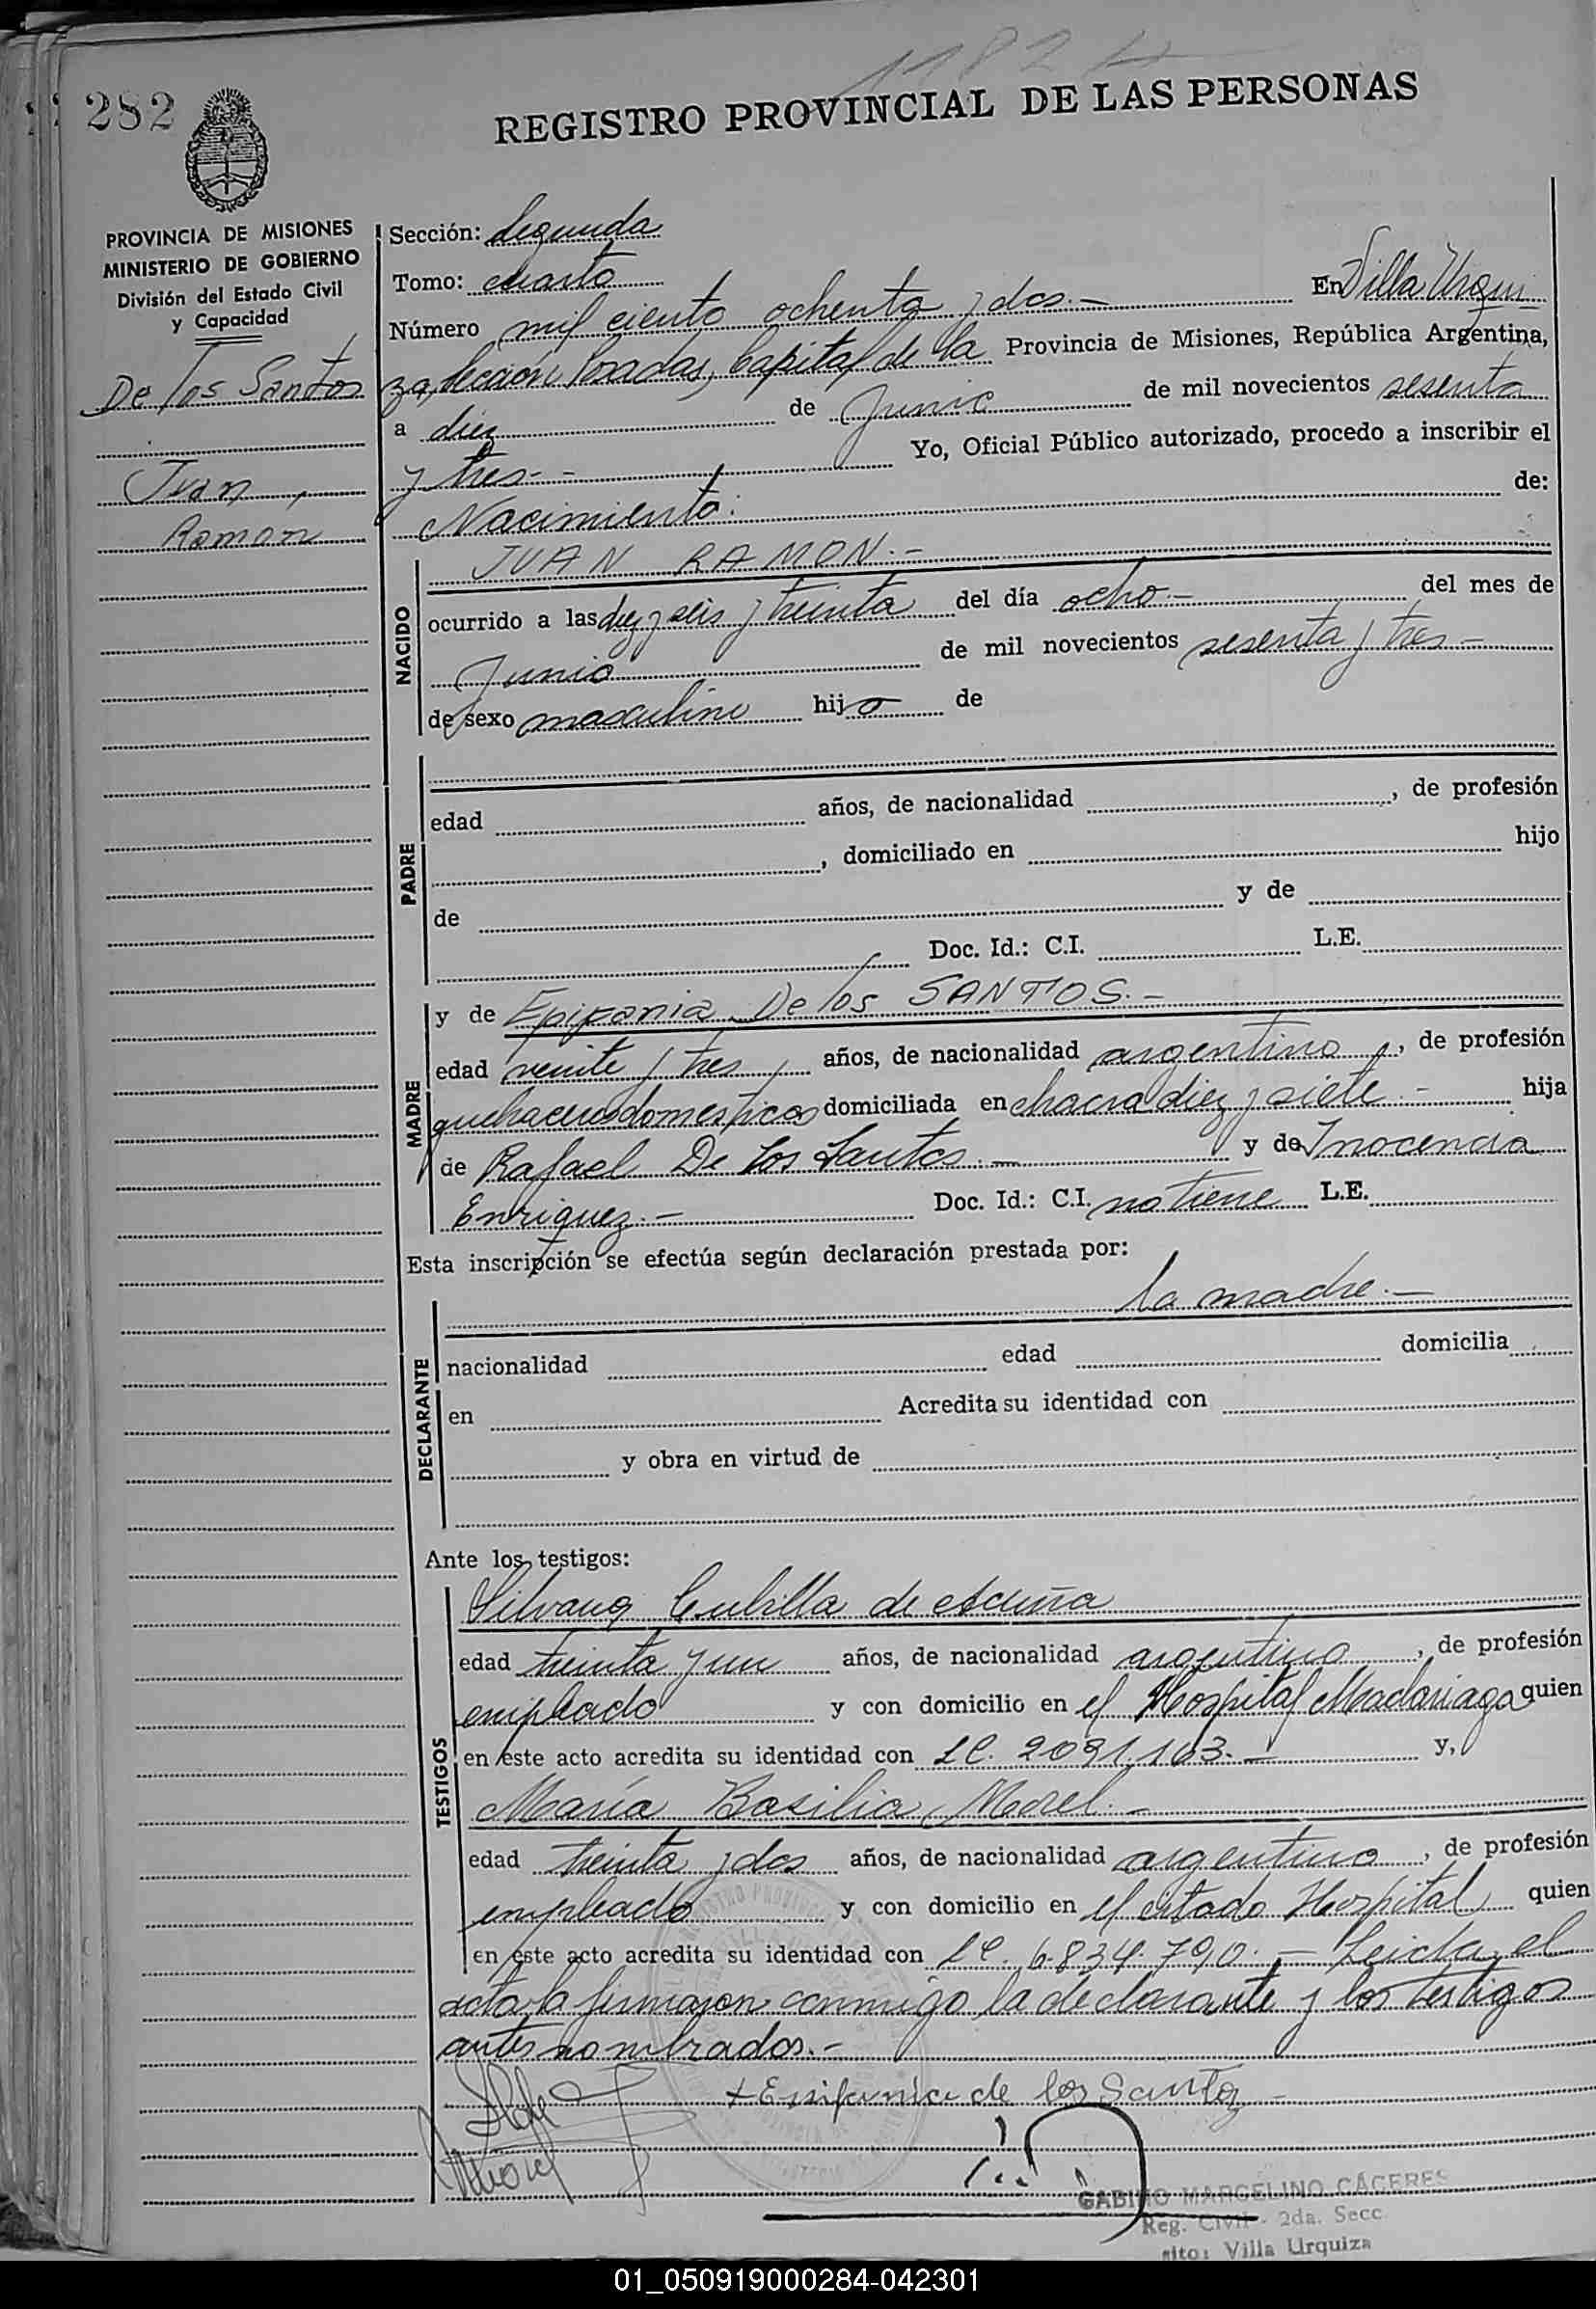 282
1182
REGISTRO PROVINCIAL DE LAS PERSONAS
PROVINCIA DE MISIONES
MINISTERIO DE GOBIERNO
División del Estado Civil
y Capacidad
De los Santos
Juan,
Ramon
Sección: Segunda
Tomo: cuarto
Número mil ciento ochenta y dos.- En Villa Urqui
za, Sección Posadas, Capital de la Provincia de Misiones, República Argentina,
a diez de Junio de mil novecientos sesenta
y tres.- Yo, Oficial Público autorizado, procedo a inscribir el
Nacimiento: de:
NACIDO
JUAN RAMON.-
ocurrido a las diez y seis y treinta del día ocho.- del mes de
Junio de mil novecientos sesenta y tres.-
de sexo masculino hijo de
PADRE
edad años, de nacionalidad , de profesión
, domiciliado en hijo
de y de
Doc. Id.: C.I. L.E.
MADRE
y de Epifania De los SANTOS.-
edad veinte y tres, años, de nacionalidad argentina, de profesión
quehaceres domesticos domiciliada en chacra diez y siete.- hija
de Rafael De Los Santos.- y de Inocencia
Enriquez.- Doc. Id.: C.I. no tiene L.E.
Esta inscripción se efectúa según declaración prestada por:
DECLARANTE
la madre.-
nacionalidad edad domicilia
en Acredita su identidad con
y obra en virtud de
Ante los testigos:
TESTIGOS
Silvana Cubilla de Acuña
edad treinta y un años, de nacionalidad argentina, de profesión
empleado y con domicilio en el Hospital Madariaga quien
en este acto acredita su identidad con LC. 2091.163.- y,
María Basilia Morel.-
edad treinta y dos años, de nacionalidad argentina, de profesión
empleado y con domicilio en el citado Hospital quien
en este acto acredita su identidad con LC. 6.834.790.- Leida el
acta la firmaron conmigo la declarante y los testigos
antes nombrados.-
+ Epifania de los Santos
Morel
GABINO MARCELINO CÁCERES
Reg. Civil - 2da. Secc.
Villa Urquiza
01_050919000284-042301